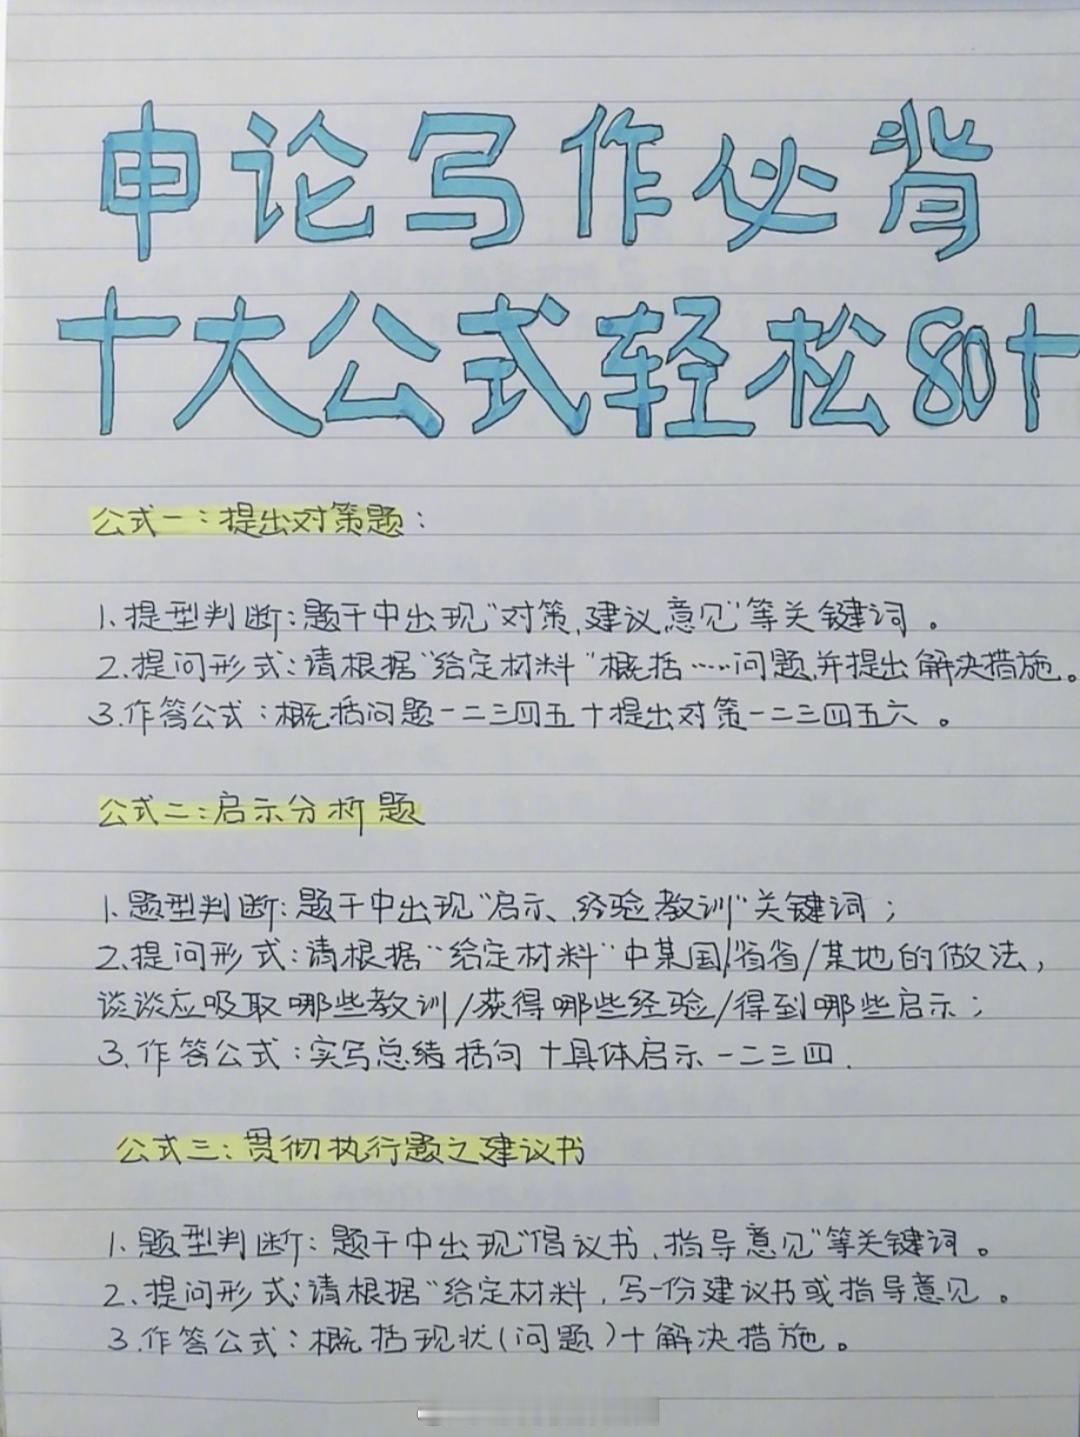 申论写作必背
十大公式轻松80+
公式一：提出对策题：
1、提型判断：题干中出现“对策、建议、意见”等关键词。
2、提问形式：请根据“给定材料”概括……问题，并提出解决措施。
3、作答公式：概括问题一二三四五+提出对策一二三四五六。
公式二：启示分析题
1、题型判断：题干中出现“启示、经验教训”关键词；
2、提问形式：请根据“给定材料”中某国/省省/某地的做法，
谈谈应吸取哪些教训/获得哪些经验/得到哪些启示；
3、作答公式：实写总结括句+具体启示一二三四.
公式三：贯彻执行题之建议书
1、题型判断：题干中出现“倡议书、指导意见”等关键词。
2、提问形式：请根据“给定材料，写一份建议书或指导意见。
3、作答公式：概括现状（问题）+解决措施。